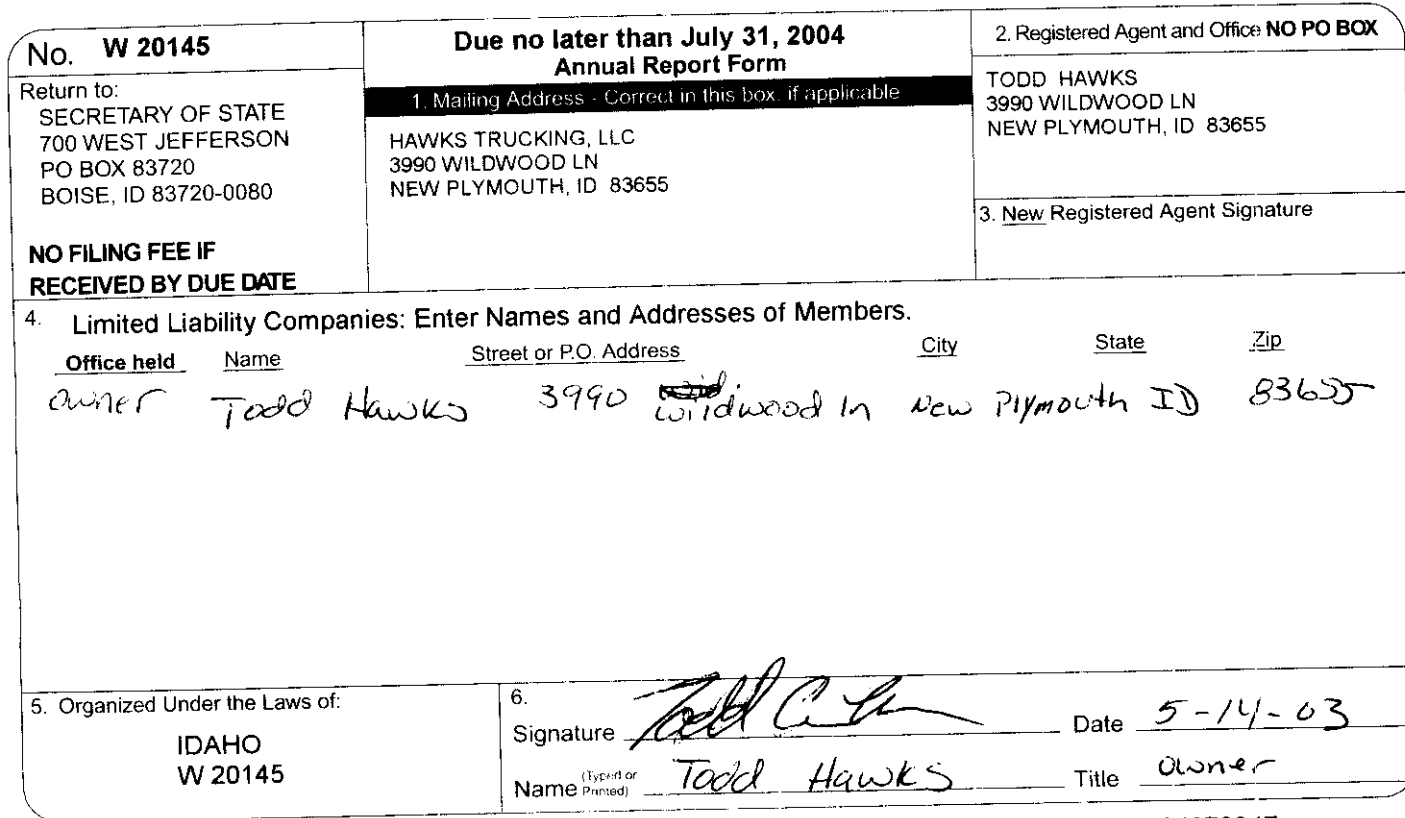 No. W 20145
Return to:
SECRETARY OF STATE
700 WEST JEFFERSON
PO BOX 83720
BOISE, ID 83720-0080
NO FILING FEE IF
RECEIVED BY DUE DATE
Due no later than July 31, 2004
Annual Report Form
1. Mailing Address - Correct in this box, if applicable
HAWKS TRUCKING, LLC
3990 WILDWOOD LN
NEW PLYMOUTH, ID 83655
2. Registered Agent and Office NO PO BOX
TODD HAWKS
3990 WILDWOOD LN
NEW PLYMOUTH, ID 83655
3. New Registered Agent Signature
4. Limited Liability Companies: Enter Names and Addresses of Members.
Office held Name Street or P.O. Address City State Zip
owner Todd Hawks 3990 wildwood ln New Plymouth ID 83655
5. Organized Under the Laws of:
IDAHO
W 20145
6.
Signature Todd Date 5-14-03
Name (Typed or Printed) Todd Hawks Title owner